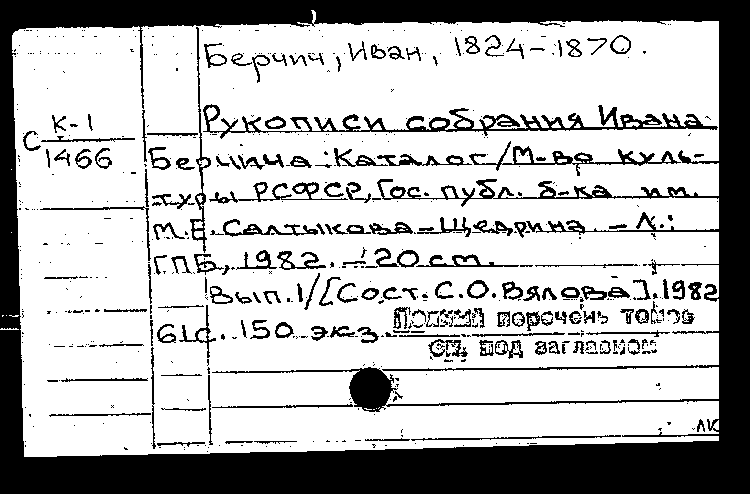 Берчич, Иван, 1824-1870.
Рукописи собрания Ивана
С К-1
1466
Берчича : Каталог / М-во куль-
туры РСФСР, Гос. публ. б-ка им.
М.Е. Салтыкова-Щедрина. - Л.:
ГПБ, 1982. - 20 см.
Вып. 1 / [Сост. С.О. Вялова]. 1982
61с. 150 экз. Полный перечень томов
см. под заглавием
лк